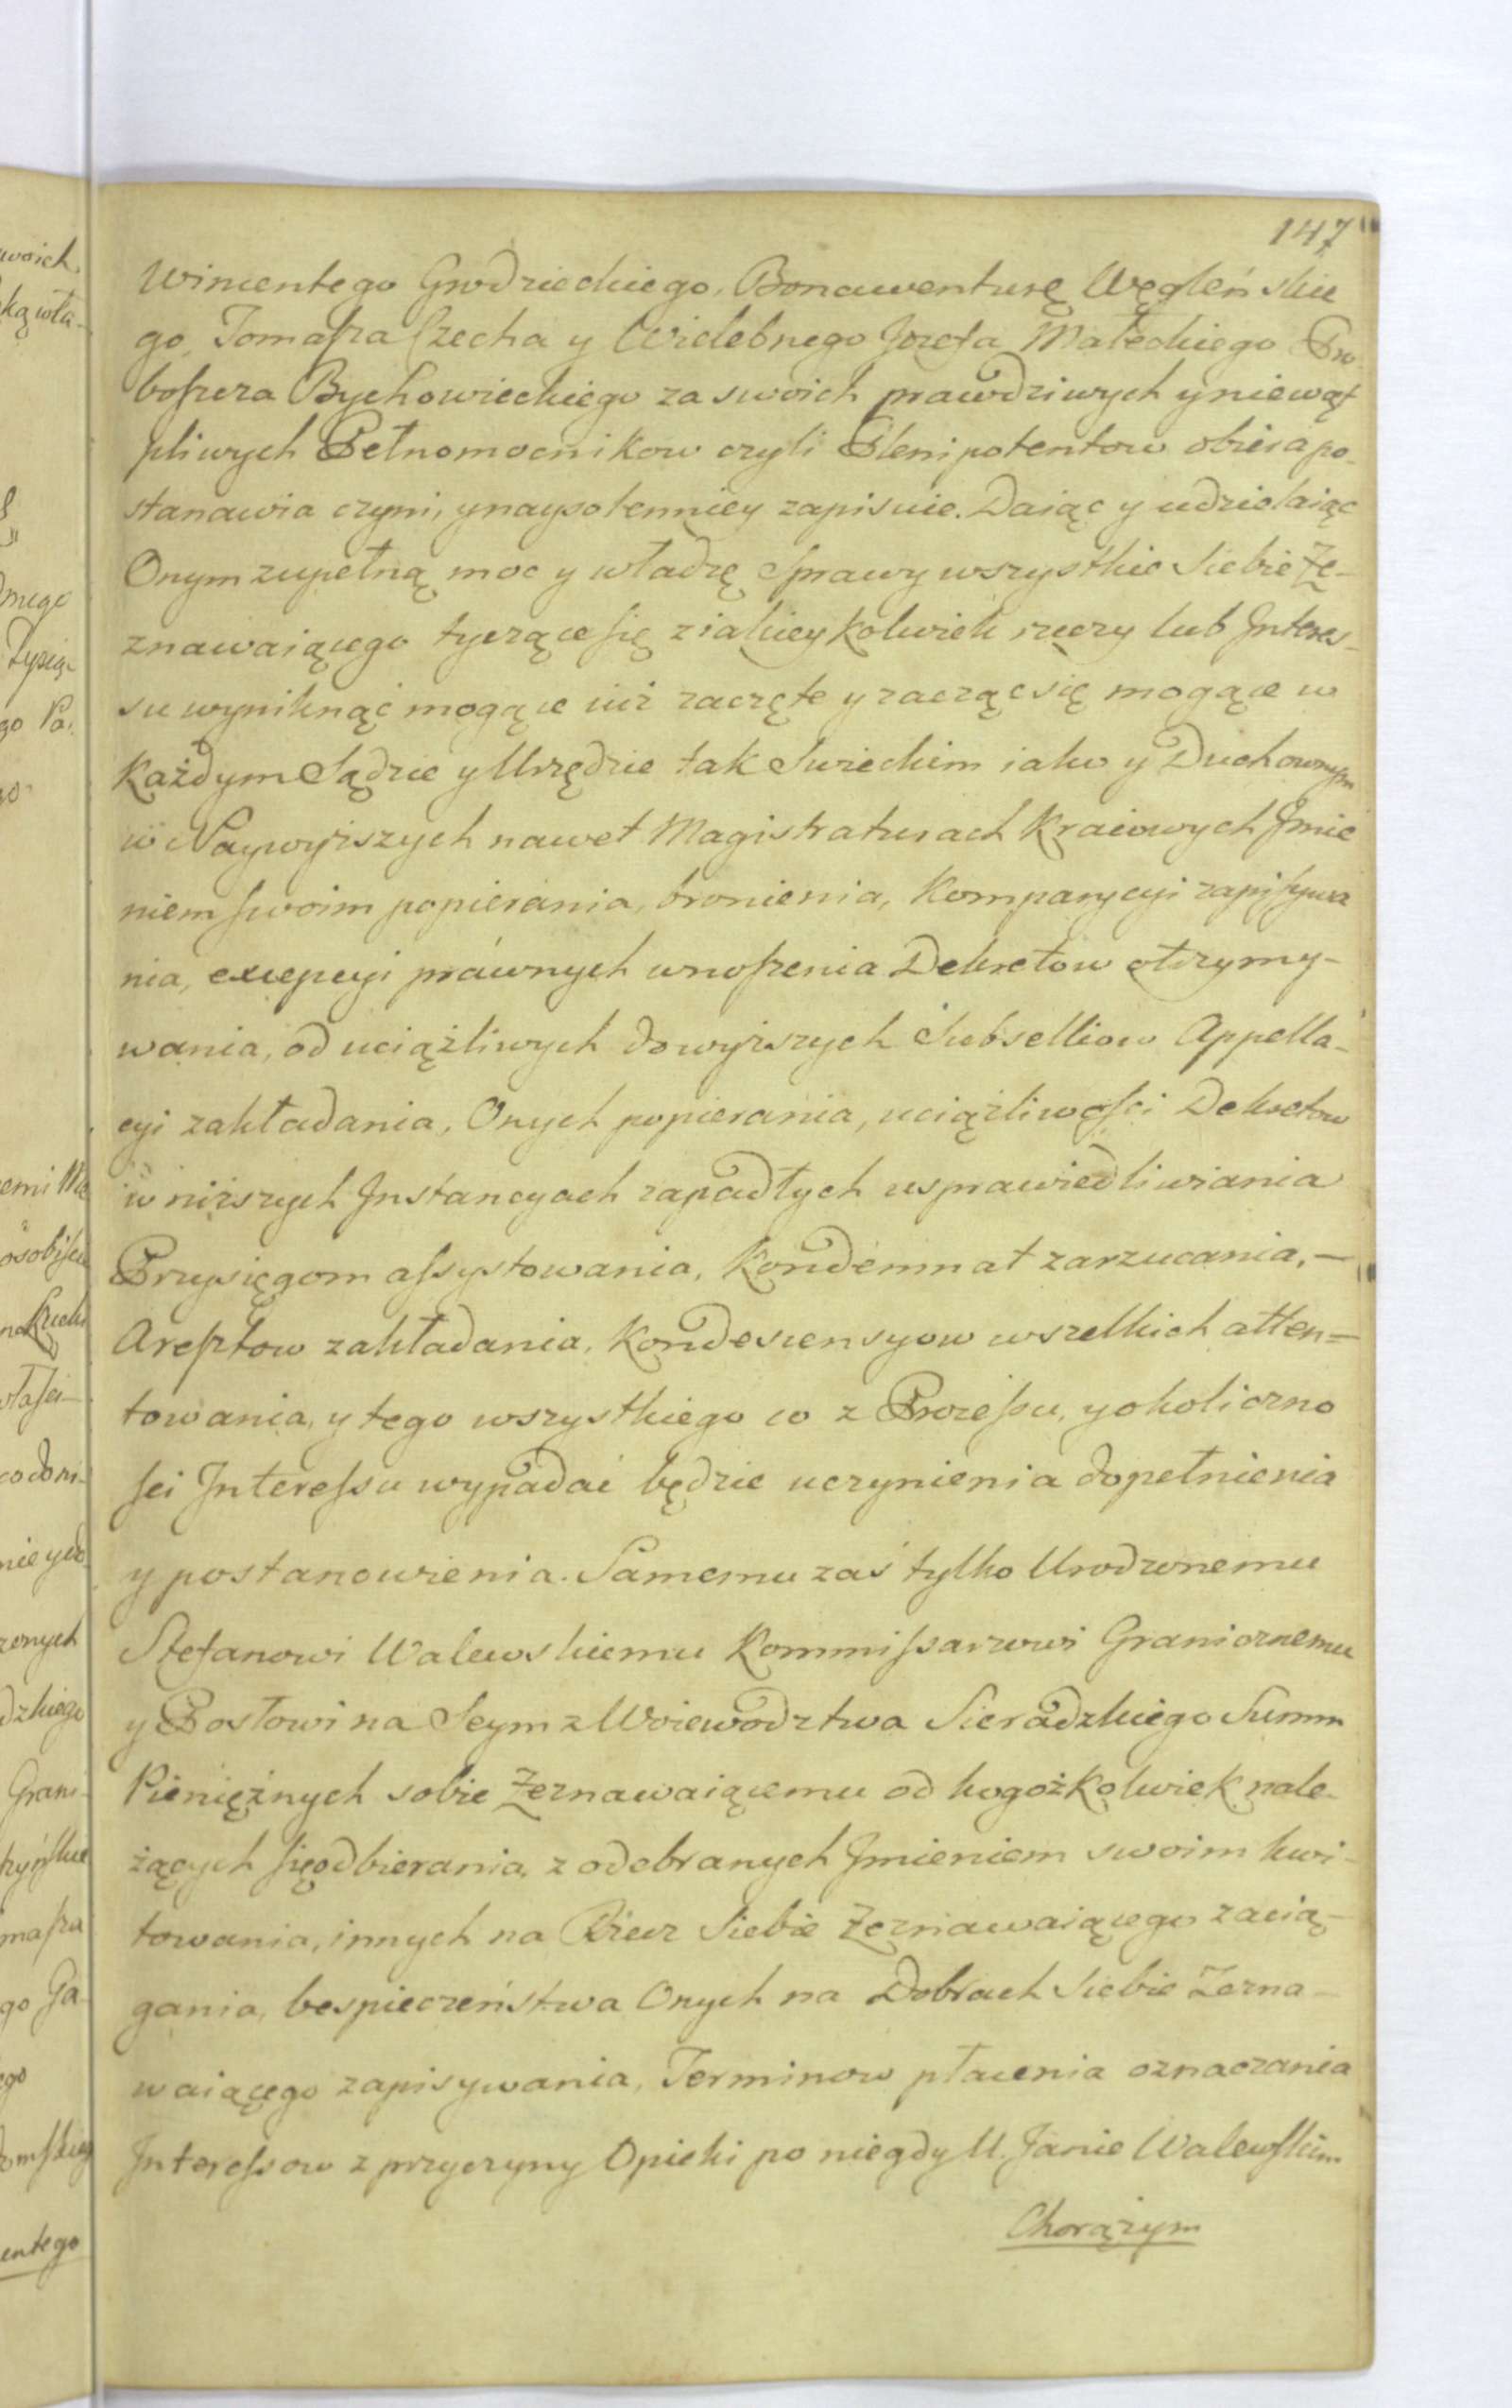 147
Wincentego Grodzieckiego, Bonawenturę Węgleńskie
go, Tomasza Czecha y Wielebnego Jozefa Małeckiego Pro
boszcza Bychowieckiego za swoich prawdziwych y niewąt
pliwych Pełnomocnikow czyli Plenipotentow obiera po-
stanawia czyni, y naysolenniey zapisuie. Daiąc y udzielaiąc
Onym zupełną moc y władzę Sprawy wszystkie Siebie Ze-
znawaiącego tyczące się z iakiey kolwiek rzeczy lub Interes-
su wyniknąć mogące iuż zaczęte y zacząć się mogące w
Każdym Sądzie y Urzędzie tak Swieckim iako y Duchownym
w Naywyższych nawet Magistraturach Kraiowych Jmie
niem swoim popierania, bronienia, Komparycyi zapisywa
nia, excepcyi prawnych wnoszenia Dekretow otrzymy-
wania, od uciążliwych do wyższych Subselliow Appella-
cyi zakładania, Onych popierania, uciążliwosci Dekretow
w niższych Instancyach zapadłych usprawiedliwiania
Przysięgom assystowania, Kondemnat zarzucania, -
Aresztow zakładania, Kondescensyow wszelkich atten=
towania, y tego wszystkiego co z Processu, y okoliczno
sci Interessu wypadać będzie uczynienia dopełnienia
y postanowienia. Samemu zaś tylko Urodzonemu
Stefanowi Walewskiemu Kommissarzowi Granicznemu
y Posłowi na Seym z Woiewodztwa Sieradzkiego Summ
Pieniężnych sobie Zeznawaiącemu od kogożkolwiek nale-
żących się odbierania, z odebranych Jmieniem swoim kwi-
towania, innych na Rzecz Siebie Zeznawaiącego zacią-
gania, bespieczeństwa Onych na Dobrach Siebie Zezna-
waiącego zapisywania, Terminow płacenia oznaczania
Interessow z przyczyny Opieki po niegdy U. Janie Walewskim
Chorążym